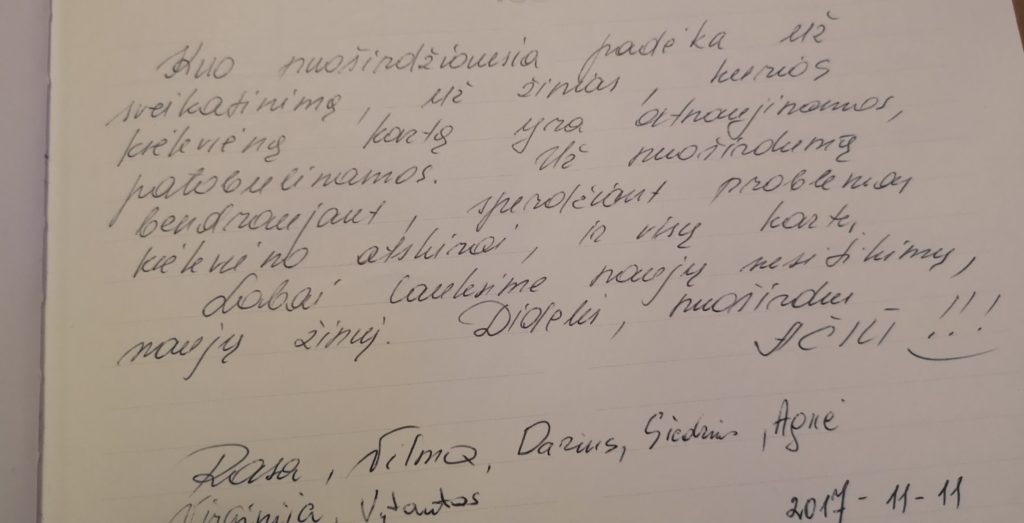 Kuo nuoširdžiausia padėka už
sveikatinimą, už žinias, kurios
kiekvieną kartą yra atnaujinamos,
patobulinamos. Už nuoširdumą
bendraujant, sperdžiant problemas
kiekvieno atskirai, ir visų kartu,
Labai lauksime naujų susitikimų,
naujų žinių. Didelis, nuoširdus
AČIŪ !!!
Rasa, Vilma, Darius, Giedrius, Agnė
Virginija, Vytautas
2017-11-11